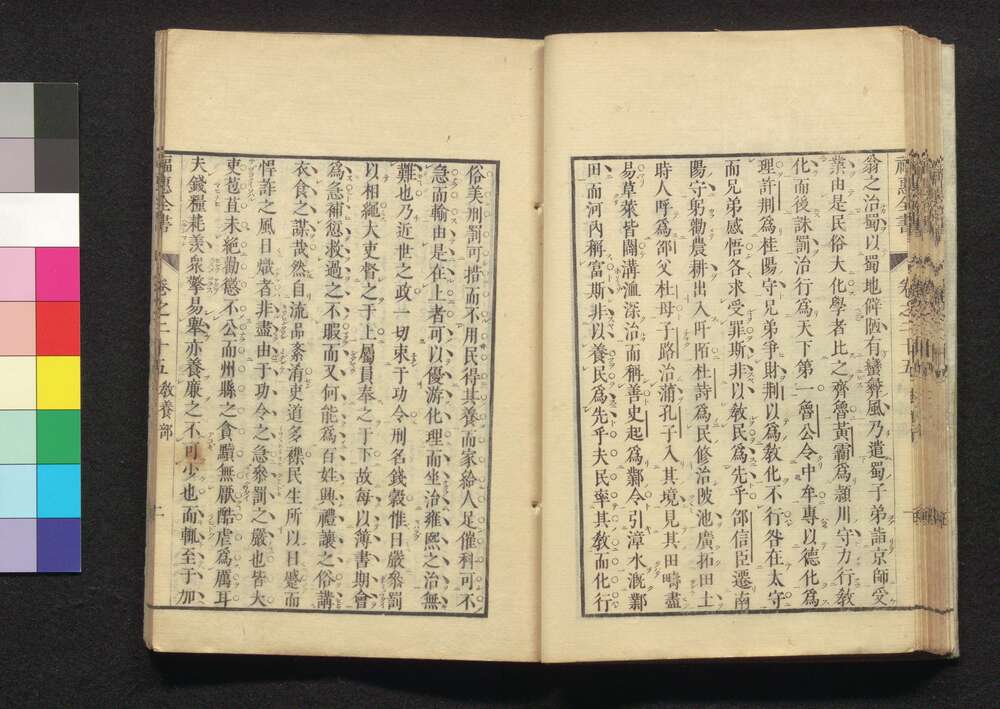 翁之治蜀以蜀地僻陋有蠻彝風乃遣蜀子弟詣京師受
業由是民俗大化學者比之齊魯黃霸爲潁川守力行教
化而後誅罰治行爲天下第一魯公令中牟專以德化爲
理許荆爲桂陽守兄弟爭財荆以爲教化不行咎在太守
而兄弟感悟各求受罪斯非以教民爲先乎邵信臣遷南
陽守躬勸農耕出入阡陌杜詩爲民修治陂池廣拓田土
時人呼爲邵父杜母子路治蒲孔子入其境見其田疇盡
易草萊皆闢溝洫深治而稱善史起爲鄴令引漳水漑鄴
田而河内稱富斯非以養民爲先乎夫民率其教而化行
俗美刑罰可措而不用民得其養而家給人足催科可不
急而輸由是在上者可以優游化理而坐治雍熙之治無
難也乃近世之政一切束于功令刑名錢穀惟日嚴參罰
以相繩大吏督之于上屬員奉之于下故每以簿書期會
爲急補愆救過之不暇而又何能爲百姓興禮讓之俗講
衣食之謀哉然自流品紊淆吏道多襍民生所以日蹙而
悍詐之風日熾者非盡由于功令之急參罰之嚴也皆大
吏苞苴未絶勸懲不公而州縣之貪黷無厭酷虐爲厲耳
夫錢糧耗羨衆擎易舉亦養廉之不可少也而輒至于加
福惠全書 卷之二十五 敎養部